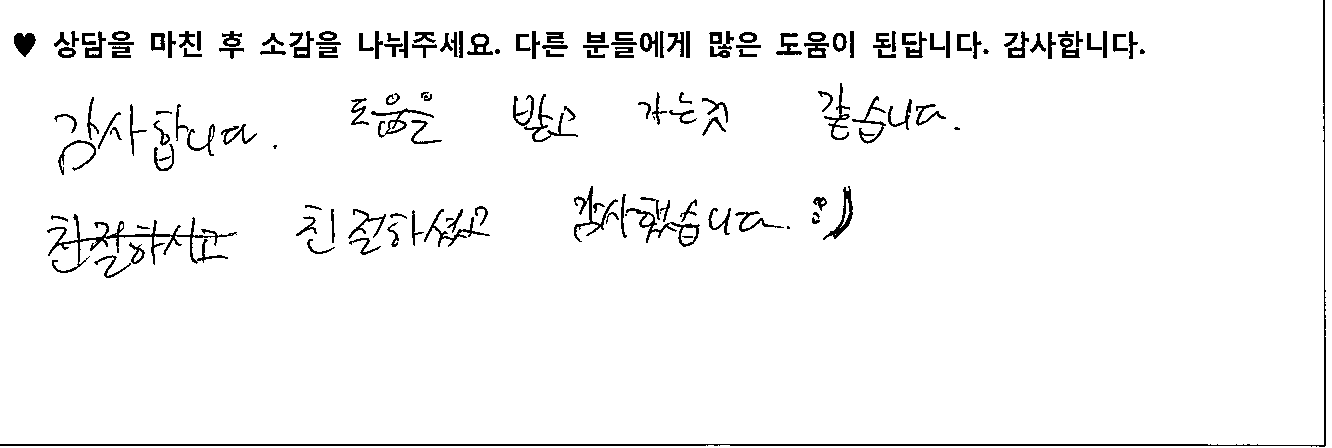 ♥ 상담을 마친 후 소감을 나눠주세요. 다른 분들에게 많은 도움이 된답니다. 감사합니다.
감사합니다. 도움을 받고 가는것 같습니다.
친절하시고 친절하셨고 감사했습니다. :)